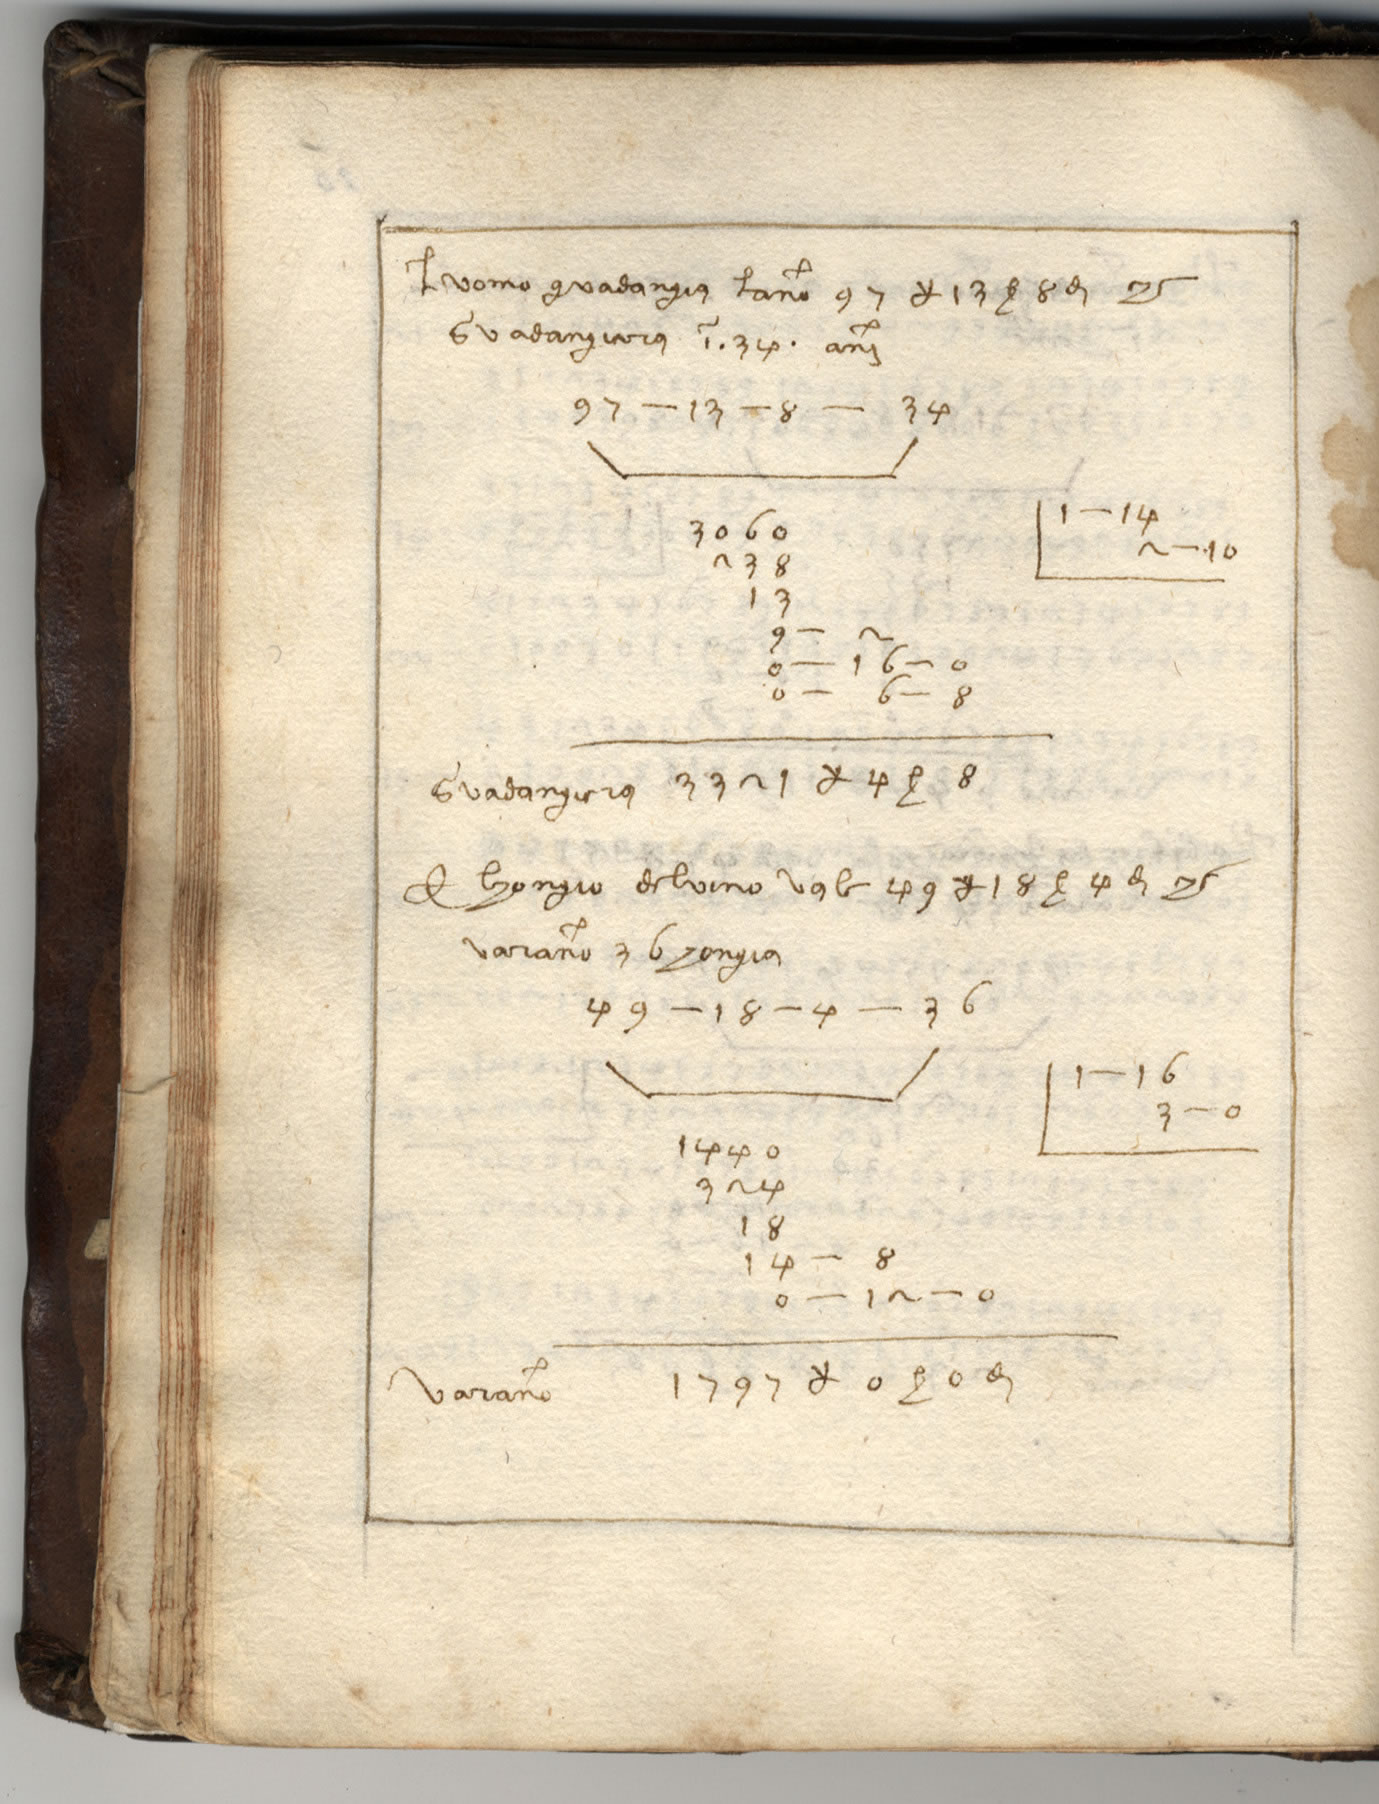 L uomo guadangia l ano 97 ₰ 13 β 8 đ
Guadangiera ĩ. 34. ani
97 — 13 — 8 — 34
3060
238
13
9 — 2
0 — 16 — 0
0 — 6 — 8
1 — 14
2 — 10
Guadangiera 3321 ₰ 4 β 8
El bzongio del vino vale 49 ₰ 18 β 4 đ
varano 36 bzongia
49 — 18 — 4 — 36
1440
324
18
14 — 8
0 — 12 — 0
1 — 16
3 — 0
Varano 1797 ₰ 0 β 0 đ